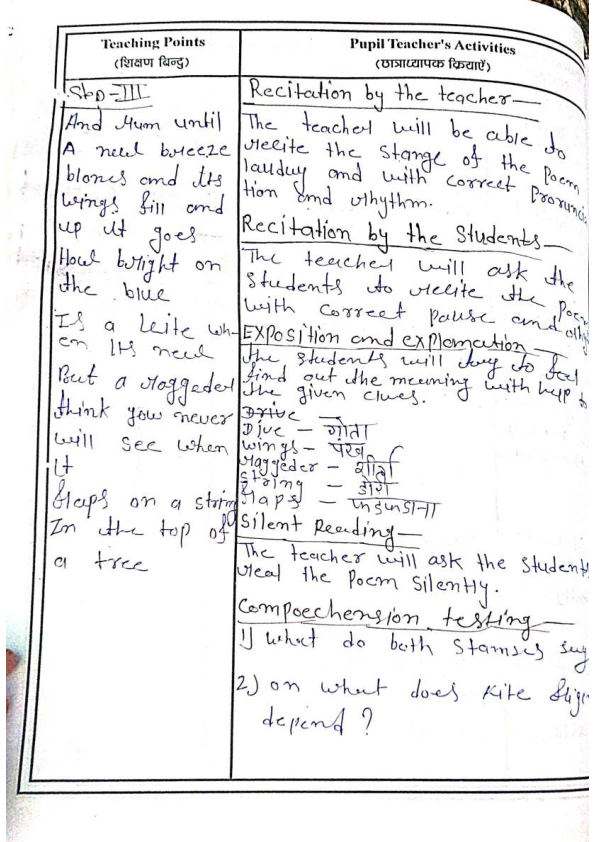 Teaching Points
(शिक्षण बिन्दु)
Pupil Teacher's Activities
(छात्राध्यापक क्रियाऐं)
Step-III
And Hum until
A new breeze
blows and its
wings fill and
up it goes
How bright on
the blue
Is a kite wh-
en its new
But a raggeder
think you never
will see when
it
flaps on a string
In the top of
a tree
Recitation by the teacher—
The teacher will be able to
recite the stange of the Poem
loudly and with correct Pronuncia
tion and rhythm.
Recitation by the Students—
The teacher will ask the
Students to recite the Poem
with correct pause and
EXPosition and explanation—
The students will try to
find out the meaning with help
the given clues.
Drive
Dive – गोता
wings – पंख
raggeder – शीर्ण
String – डोरी
flaps – फड़फडाना
Silent Reading—
The teacher will ask the Students
read the Poem Silently.
Compoechension testing—
1) what do both Stamses say
2) on what does kite fligh
depend ?